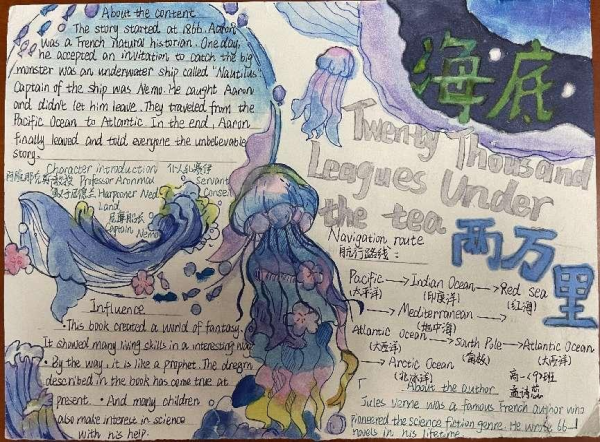 About the content
The story started at 1866. Aaron
was a French natural historian. One day,
he accepted an invitation to catch the big
monster was an underwater ship called "Nautilus"
Captain of the ship was Nemo. He caught Aaron
and didn't let him leave. They traveled from the
Pacific Ocean to Atlantic. In the end, Aaron
finally leaved and told everyone the unbelievable
story.
海底
Twenty Thousand
Leagues Under
the tea
两万
里
Character introduction
Professor Aronnax
Servant
Harpooner Ned
Land
Captain Nemo
Navigation route
航行路线:
Pacific → Indian Ocean → Red sea
(太平洋) (印度洋) (红海)
→ Mediterranean →
(地中海)
Atlantic Ocean → South Pole → Atlantic Ocean
(大西洋) (南极) (大西洋)
→ Arctic Ocean
(北冰洋)
Influence
·This book created a world of fantasy.
It showed many living skills in a interesting way.
· By the way, it is like a prophet. The
described in the book has come true at
present. · And many children
also make interest in science
with his help.
About the author
Jules Verne was a famous French author who
pioneered the science fiction genre. He wrote 66
novels in his lifetime.